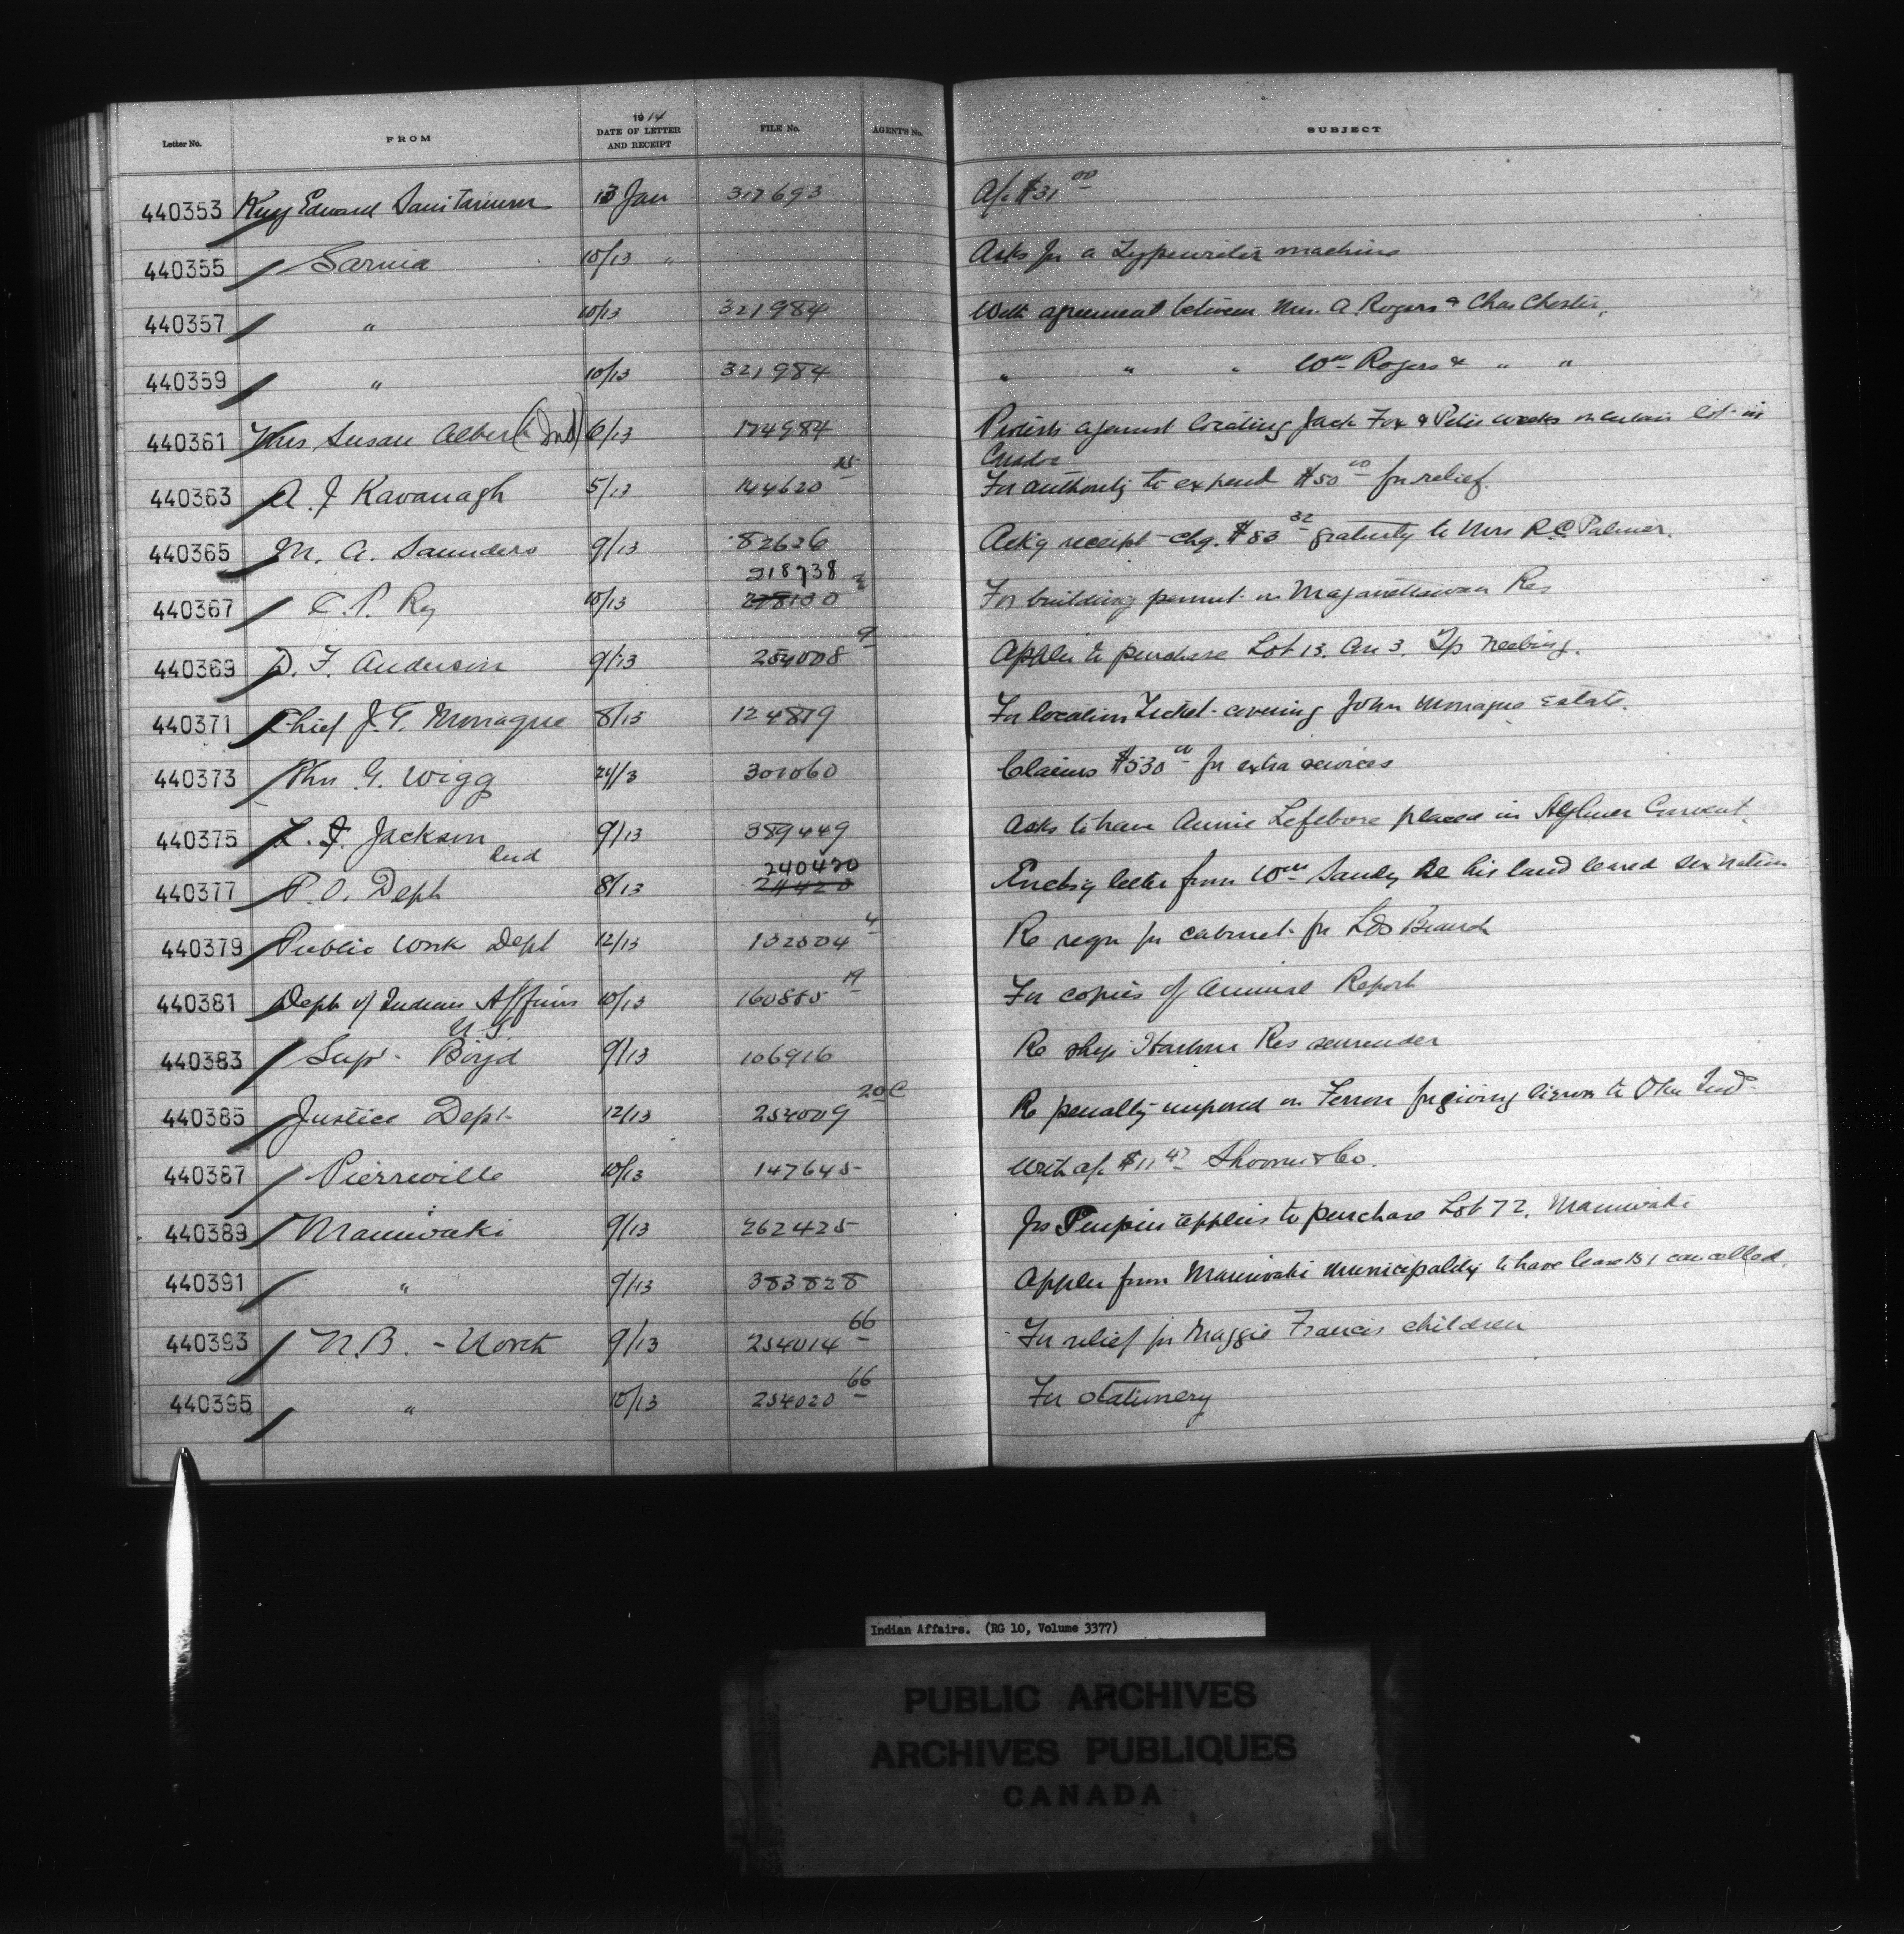 Letter No. FROM 1914 DATE OF LETTER AND RECEIPT FILE No. AGENT'S No. SUBJECT
440353 King Edward Sanitarium 13 Jan 317693 A/c $31 00
440355 Sarnia 10/13 " Asks for a Typewriter machine
440357 " 10/13 321984 With agreement between Mrs. A. Rogers & Chas Chester,
440359 " 10/13 321984 " " " Wm Rogers & " "
440361 Mrs Susan Albert (Ind) 6/13 174984 Protests against locating Jack Fox & Peter Weeks on certain lot in
Caradoc
440363 A. J Kavanagh 5/13 144620 25 For authority to expend $50 00 for relief.
440365 M. A. Saunders 9/13 82626 Ack'g receipt chq. $83 32 gratuity to Mrs R C Palmer.
218738
440367 C. P. Ry 10/13 228130 2 For building permit on Maganettawan Res
440369 D. F. Anderson 9/13 254008 9 Applies to purchase Lot 13. Con 3. Tp Neebing.
440371 Chief J. T. Monague 8/13 124819 For location Ticket covering John Monague Estate.
440373 Thos G. Wigg 24/3 301060 Claims $530 00 for extra services
440375 L. J. Jackson 9/13 389449 Asks to have Annie Lefebvre placed in Aylmer Convent.
Ind 240420
440377 P. O. Dept 8/13 24420 Enclos'g letter from Wm Sandy Re his land leased Six Nation
440379 Public Work Dept 12/13 132504 4 Re reqn for cabinet for L&T Branch
440381 Dept of Indian Affairs 10/13 160885 19 For copies of Annual Report
U.S.
440383 Supt. Boyd 9/13 106916 Re Ship Harbour Res surrender
440385 Justice Dept 12/13 254009 20 C Re penalty imposed on Ferron for giving liquor to Oka Ind
440387 Pierreville 10/13 147645 With a/c $11 47 & Co.
440389 Maniwaki 9/13 262425 applies to purchase Lot 72, Maniwaki
440391 " 9/13 383828 Appln from Maniwaki Municipality to have lease 131 cancelled.
440393 N.B. - North 9/13 254014 66 For relief for Maggie Francis children
440395 " 10/13 254020 66 For stationery
Indian Affairs. (RG 10, Volume 3377)
PUBLIC ARCHIVES
ARCHIVES PUBLIQUES
CANADA